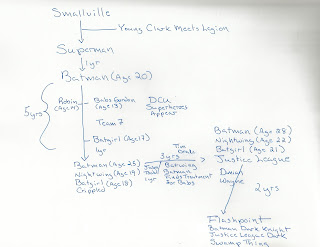 Smallville
Young Clark Meets Legion
Superman
1yr
Batman (Age 20)
5yrs
Robin
Babs Gordon
(Age 13)
DCU
Superheroes
Appear
Team 7
Batgirl (Age 17)
1yr
Batman (Age 25)
Nightwing (Age 19)
Batgirl (Age 18)
Crippled
Jason
Todd
1yr
Tim
Drake
3yrs
Batwing
Batman
Treatment
for Babs
Batman (Age 28)
Nightwing (Age 22)
Batgirl (Age 21)
Justice League
Damian
Wayne
2yrs
Flashpoint
Batman Dark Knight
Justice League Dark
Swamp Thing